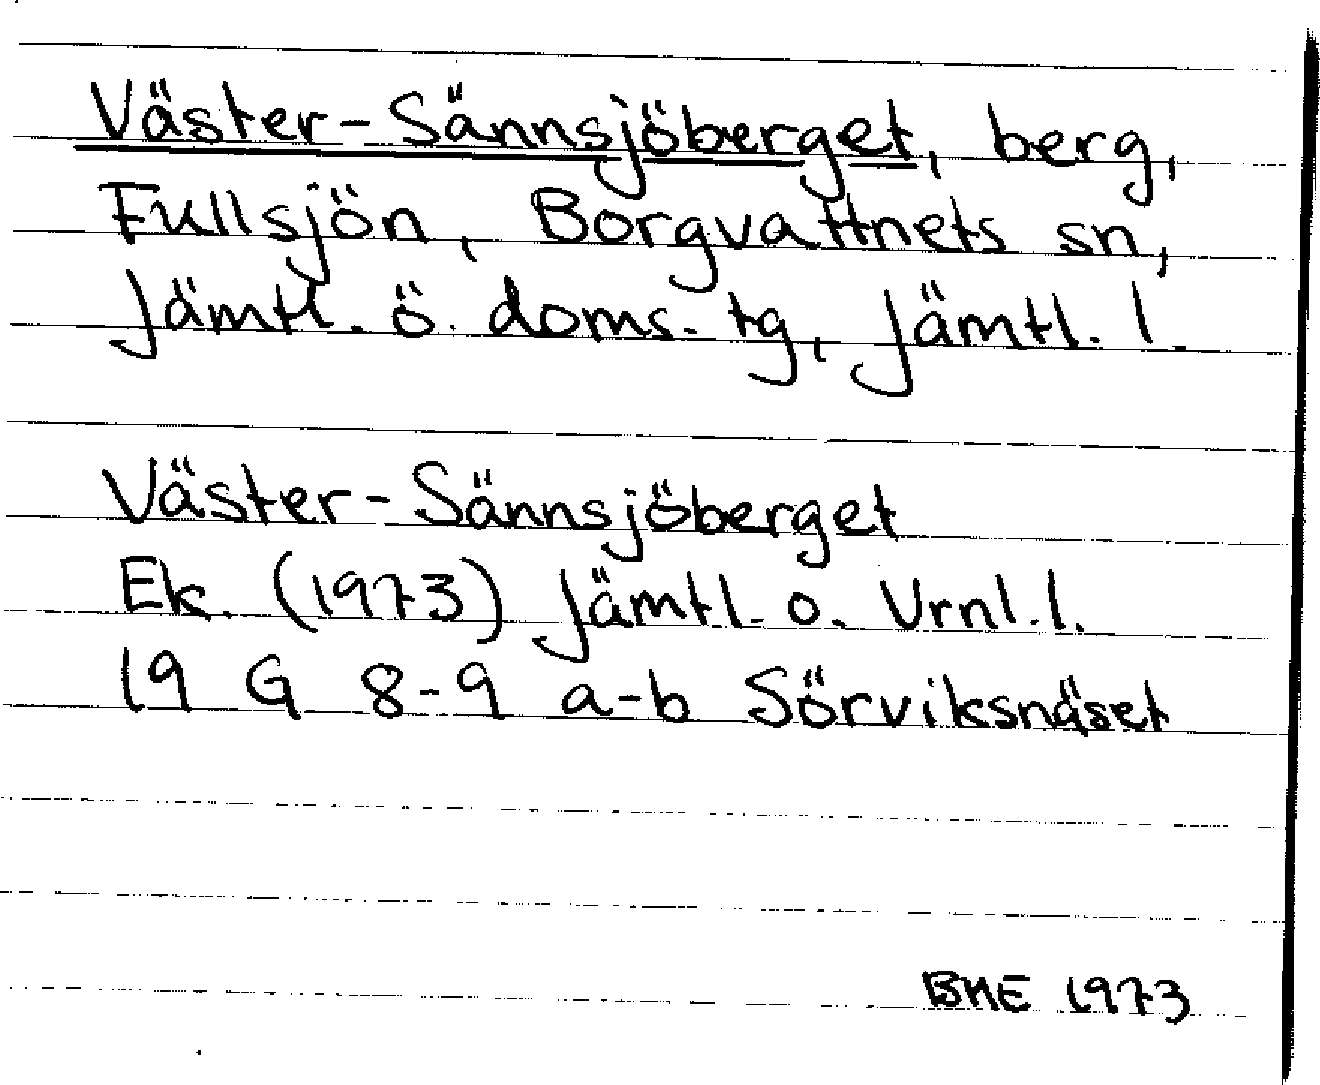 Väster-Sännsjöberget, berg,
Fullsjön, Borgvattnets sn,
Jämtl. ö. doms. tg, Jämtl. l.
Väster-Sännsjöberget
Ek. (1973) Jämtl. o. Vrnl. l.
19 G 8-9 a-b Sörviksnäset
BME 1973